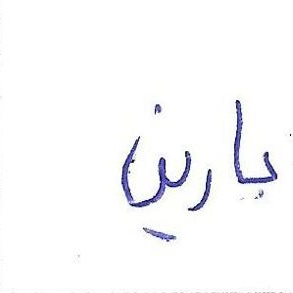 بارين